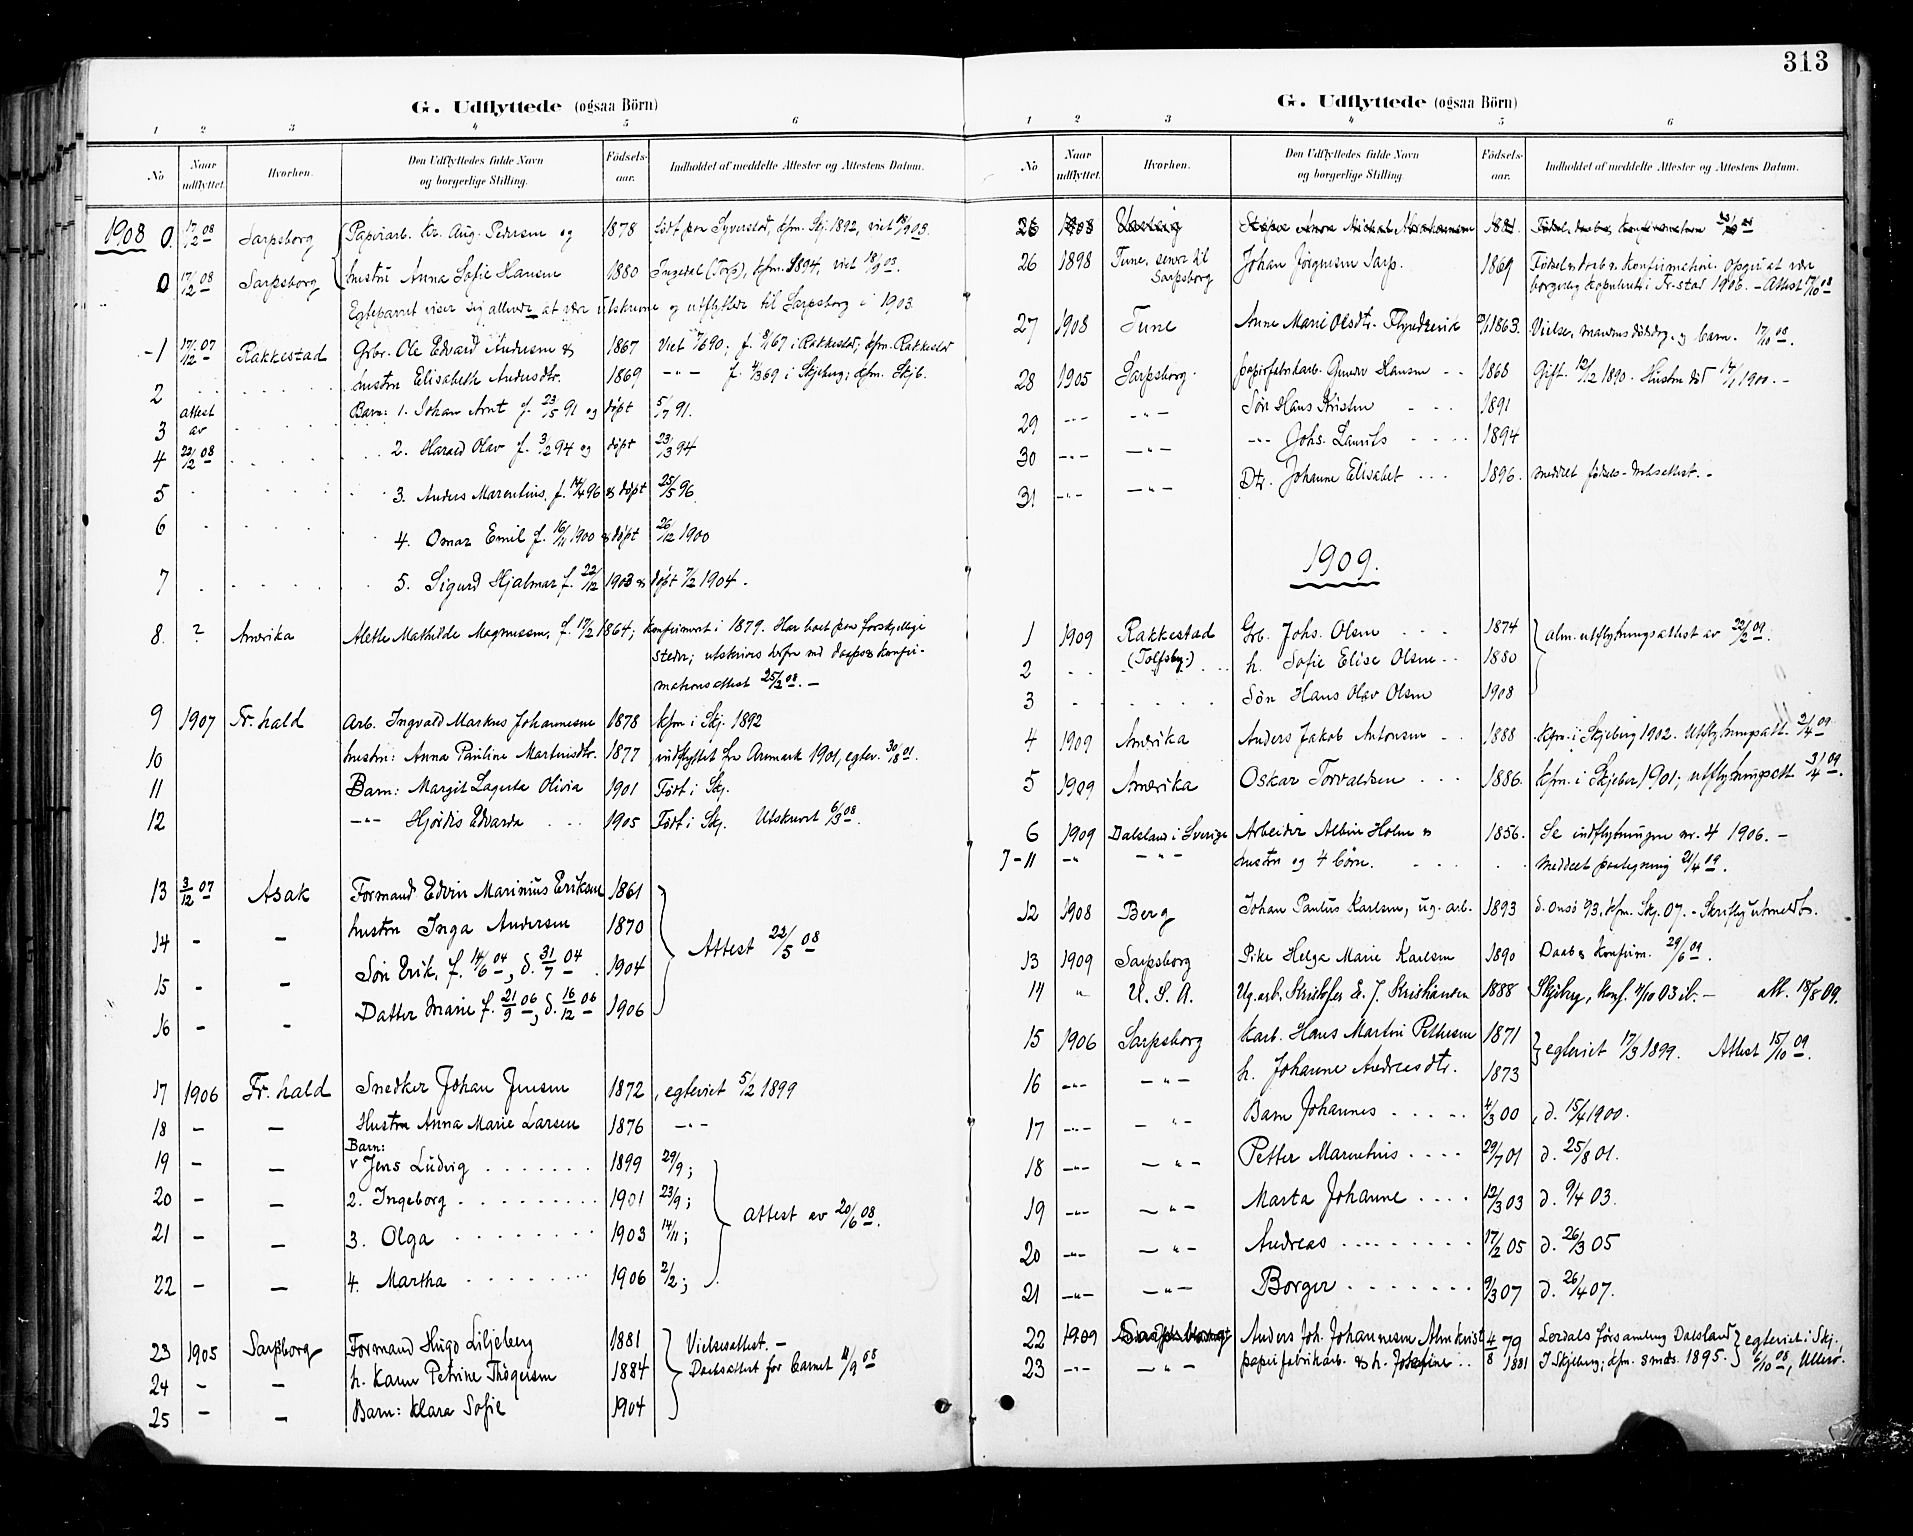 313
G. Udflyttede (ogsaa Börn)
1 2 3 4 5 6
No Naar udflyttet. Hvorhen. Den Udflyttedes fulde Navn og borgerlige Stilling. Födselsaar. Indholdet af meddelte Attester og Attestens Datum.
1908 0. 17/2 08 Sarpsborg Papirarb. Kr. Aug. Pedersen og 1878 født paa Syverstad, kfm. Skj. 1892, viet 18/9 03.
0 17/2 08 Sarpsborg hustru Anna Sofie Hansen 1880 Ingedal (Torp), kfm. 1894, viet 18/9 03.
Egteparret viser sig allerede at være utskrevne og utflyttede til Sarpsborg i 1903
1 17/12 07 Rakkestad Grbr. Ole Edvard Andersen & 1867 Viet 7/6 90; f. 8/1 67 i Rakkestad, kfm. Rakkestad
2 hustru Elisabeth Andersdtr. 1869 -"- f. 4/3 69 i Skjeberg; kfm. Skjb.
3 attest av Barn: 1. Johan Arnt f. 23/5 91 og døpt 5/7 91.
4 22/2 08 2. Harald Olav f. 3/2 94 og døpt 23/3 94
5 3. Anders Marentius, f. 14/4 96 & døpt 25/5 96.
6 4. Omar Emil f. 16/11 1900 & døpt 26/12 1900
7 5. Sigurd Hjalmar f. 22/12 1903 & døpt 7/2 1904.
8. ? Amerika Alette Mathilde Magnussen, f. 17/2 1864; konfirmert i 1879. Har boet paa forskjellige
steder; utskrives herfra med daaps & konfir-
mationsattest 25/2 08. —
9 1907 Fr.hald Arb. Ingvald Markus Johannesen 1878 kfm i Skj. 1892
10 hustru: Anna Pauline Martinsdtr. 1877 indflyttet fra Aremark 1901, egtev. 30/8 01.
11 Barn: Margit Lagerta Olivia 1901 Født i Skj.
12 -"- Hjørdis Edvarda 1905 Født i Skj. Utskrevet 6/3 08.
13 3/12 07 Asak Formand Edvin Marinius Eriksen 1861
14 - - hustru Inga Andersen 1870 Attest 22/5 08
15 - - Søn Erik, f. 14/6 04, d. 31/7 04. 1904
16 - - Datter Marie f. 21/9 06, d. 16/12 06 1906
17 1906 Fr.hald Snedker Johan Jensen 1872, egteviet 5/2 1899
18 - - Hustru Anna Marie Larsen 1876 -"-
Barn:
19 - - Jens Ludvig 1899 29/9;
20 - - 2. Ingeborg 1901 23/9; attest av 20/6 08.
21 - - 3. Olga 1903 14/11;
22 - - 4. Martha 1906 2/2;
23 1905 Sarpsborg Formand Hugo Liljeberg 1881 Vielsesattest. —
24 - - h. Karen Petrine Thøgersen 1884 Daabsattest for barnet 11/9 08
25 - - Barn: Klara Sofie 1904
G. Udflyttede (ogsaa Börn)
1 2 3 4 5 6
No Naar udflyttet. Hvorhen. Den Udflyttedes fulde Navn og borgerlige Stilling. Födselsaar. Indholdet af meddelte Attester og Attestens Datum.
26 1908
26 1898 Tune, senere til Sarpsborg Johan Jørgensen Sarp. 1869 Fødsel, daab & konfirmation. Opgir at være
borgerlig kopuleret i Fr.stad 1906. - Attest 17/10 08
27 1908 Tune Anne Marie Olsdtr. 1863. Vielse, mandens dødsdag og barn. 17/10 08.
28 1905 Sarpsborg. papirfabrikarb. Gunder Hansen 1868 Gift. 12/12 1890. Hustru død 14/1 1900. -
29 -"- -"- Søn Hans Kristen 1891
30 -"- -"- -"- Johs. Laurits 1894
31 -"- -"- Dtr. Johanne Elisabet 1896. meddelt fødsels- attest. -
1909.
1 1909 Rakkestad Grb. Johs. Olsen 1874 alm. utflytningsattest av 22/2 09.
2 (Tolfsby.) h. Sofie Elise Olsen 1880
3 Søn Hans Olav Olsen 1908
4 1909 Amerika Anders Jakob Antonsen 1888 kfm. i Skjeberg 1902. Utflytningsatt. 2/4 09
5 1909 Amerika Oskar Torvaldsen 1886. kfm. i Skjeberg 1901; utflytningsatt 3/4 09.
6 1909 Dalsland i Sverige Arbeider Albin Holm & 1856. Se indflytningen nr. 4 1906. -
7-11 -"- -"- hustru og 4 børn. Meddelt 21/4 09.
12 1908 Berg Johan Paulus Karlsen, ug. arb. 1893 d. Onsø 93, kfm. Skj. 07. - Skriftlig utmeldt.
13 1909 Sarpsborg Pike Helga Marie Karlsen 1890 Daab & Konfirm. 29/6 09.
14 " U.S.A. Ug. arb. Kristofer E. J. Kristiansen 1888 Skjeberg, konf. 4/10 03 ib. - att. 18/8 09.
15 1906 Sarpsborg Karb. Hans Martin Pettersen 1871 egteviet 17/3 1899. Attest 15/10 09.
16 -"- -"- h. Johanne Andreasdtr. 1873
17 -"- -"- Barn Johannes 4/3 00, d. 15/4 1900.
18 -"- -"- Petter Marentius 29/7 01 d. 25/8 01.
19 -"- -"- Marta Johanne 12/3 03 d. 9/4 03.
20 -"- -"- Andreas 17/2 05 d. 26/3 05
21 -"- -"- Borger 9/3 07 d. 26/4 07.
22 1909 Anders Joh. Johannesen Almkvist 4/79 Lerdals församling Dalsland egteviet i Skj.
23 -"- -"- papirfabrikarb. & h. Josefine 8 1881 I Skjeberg; kfm. smds. 1895. 6/10 08, Ullerø.